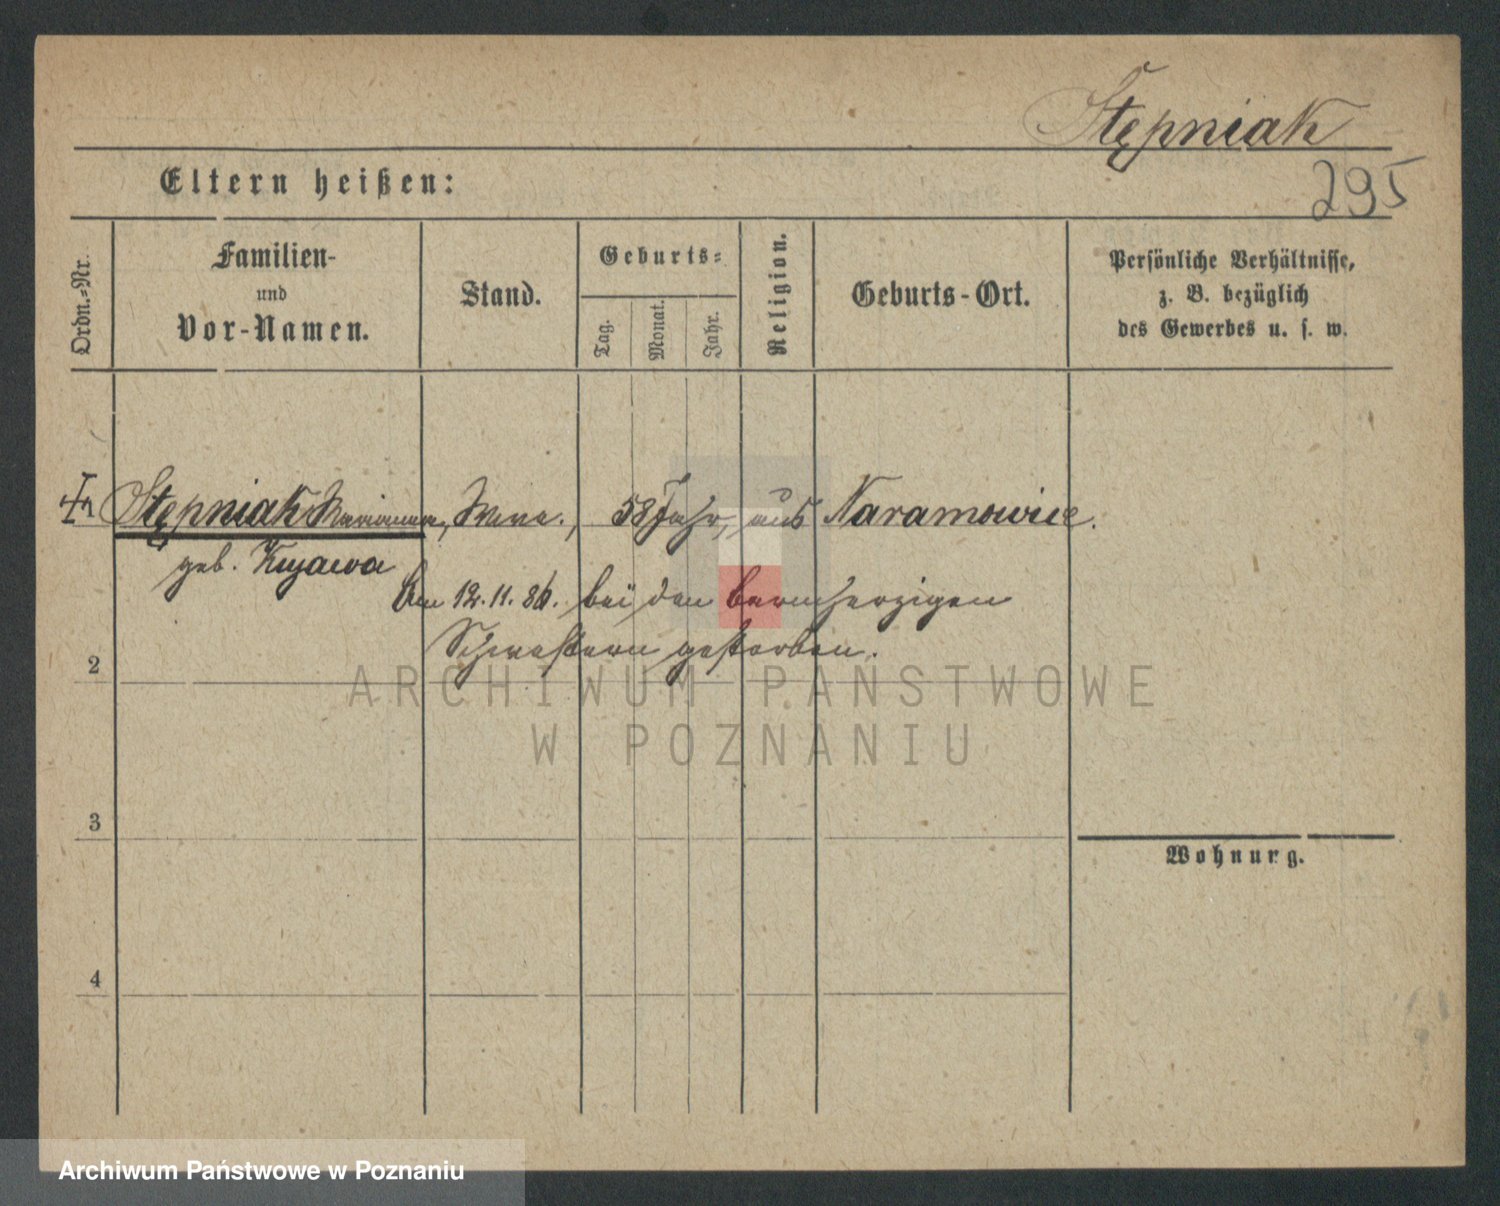 Stępniak
295
Eltern heißen:
Ordn.-Nr.
Familien-
und
Vor-Namen.
Stand.
Geburts-
Tag.
Monat.
Jahr.
Religion.
Geburts-Ort.
Persönliche Verhältnisse,
z. B. bezüglich
des Gewerbes u. s. w.
1 Stępniak Marianna, Wwe., 58 Jahr, aus Naramowice.
geb. Kujawa
Am 12.11.86. bei den barmherzigen
Schwestern gestorben.
2
ARCHIWUM PAŃSTWOWE
W POZNANIU
3
Wohnung.
4
Archiwum Państwowe w Poznaniu